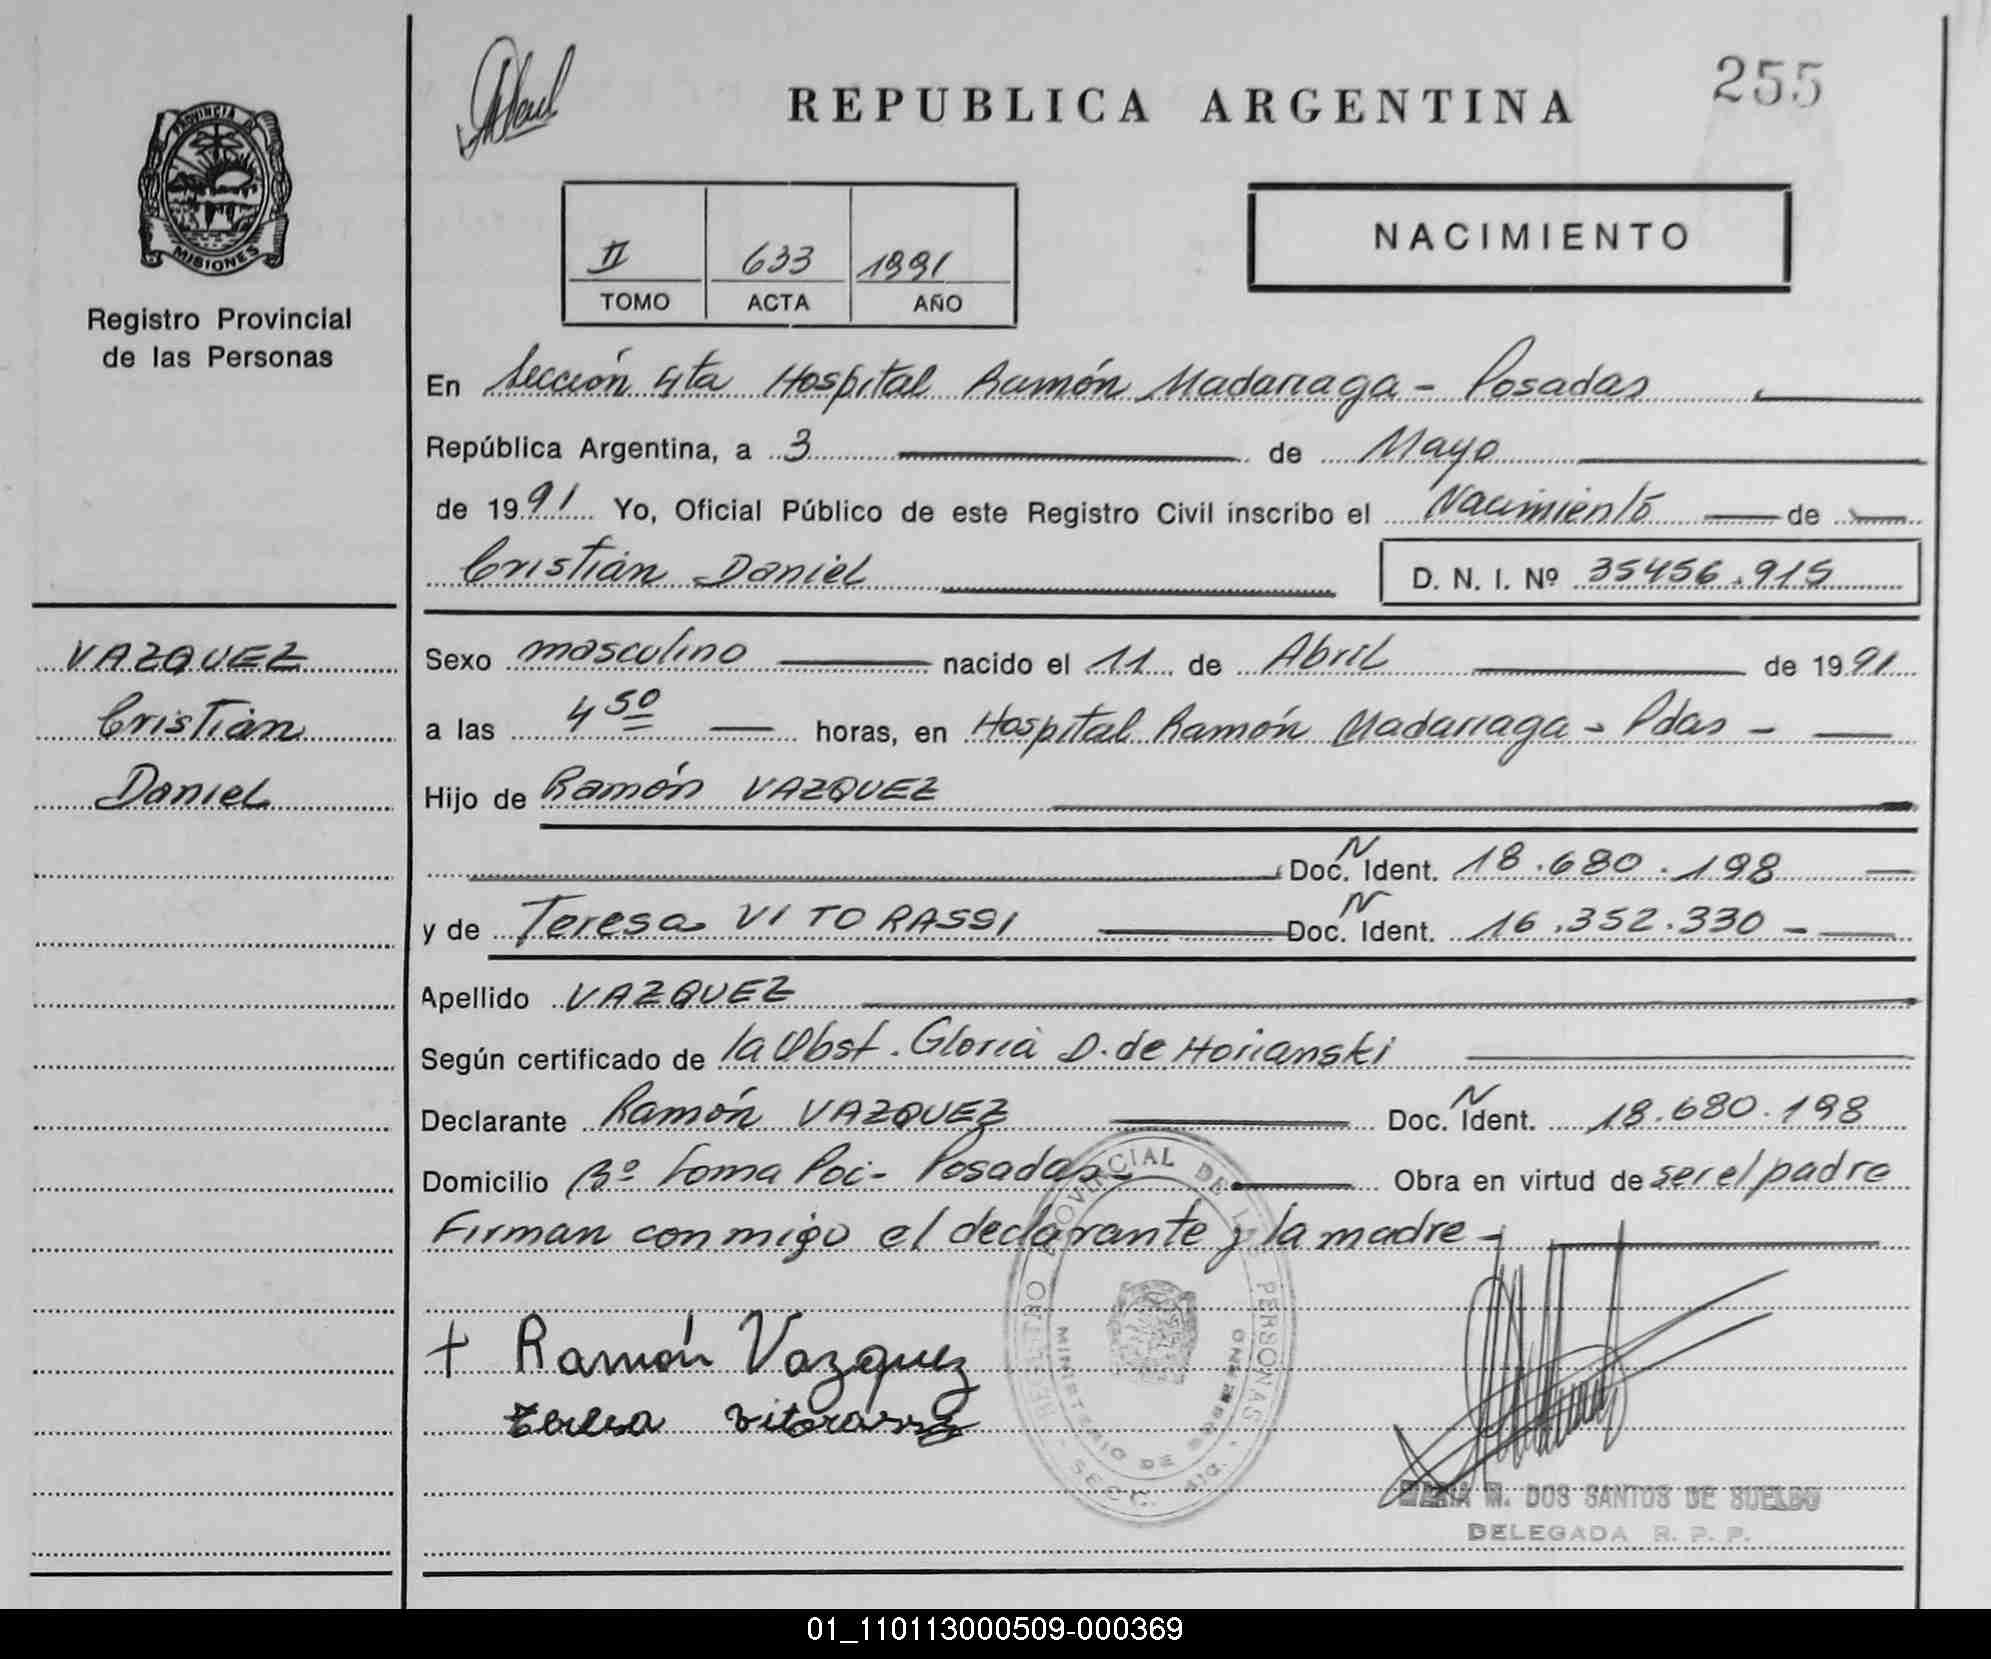 255
REPUBLICA ARGENTINA
PROVINCIA DE
MISIONES
Registro Provincial
de las Personas
II 633 1991
TOMO ACTA AÑO
NACIMIENTO
En Sección 4ta Hospital Ramón Madariaga - Posadas
República Argentina, a 3 de Mayo
de 1991 Yo, Oficial Público de este Registro Civil inscribo el Nacimiento de
Cristian Daniel D. N. I. Nº 35456.915
VAZQUEZ
Cristian
Daniel
Sexo masculino nacido el 11 de Abril de 1991
a las 4 50 horas, en Hospital Ramón Madariaga - Pdas -
Hijo de Ramón VAZQUEZ
Doc. N Ident. 18.680.198
y de Teresa VITORASSI Doc. N Ident. 16.352.330 -
Apellido VAZQUEZ
Según certificado de la Obst. Gloria D. de Horianski
Declarante Ramón VAZQUEZ Doc. N Ident. 18.680.198
Domicilio Bº Loma Poi - Posadas - Obra en virtud de ser el padre
Firman conmigo el declarante y la madre -
+ Ramón Vazquez
teresa vitorassi
REGISTRO PROVINCIAL DE LAS PERSONAS
MINISTERIO DE GOBIERNO
SECC. 4ta.
MARIA M. DOS SANTOS DE SUELDO
DELEGADA R. P. P.
01_110113000509-000369